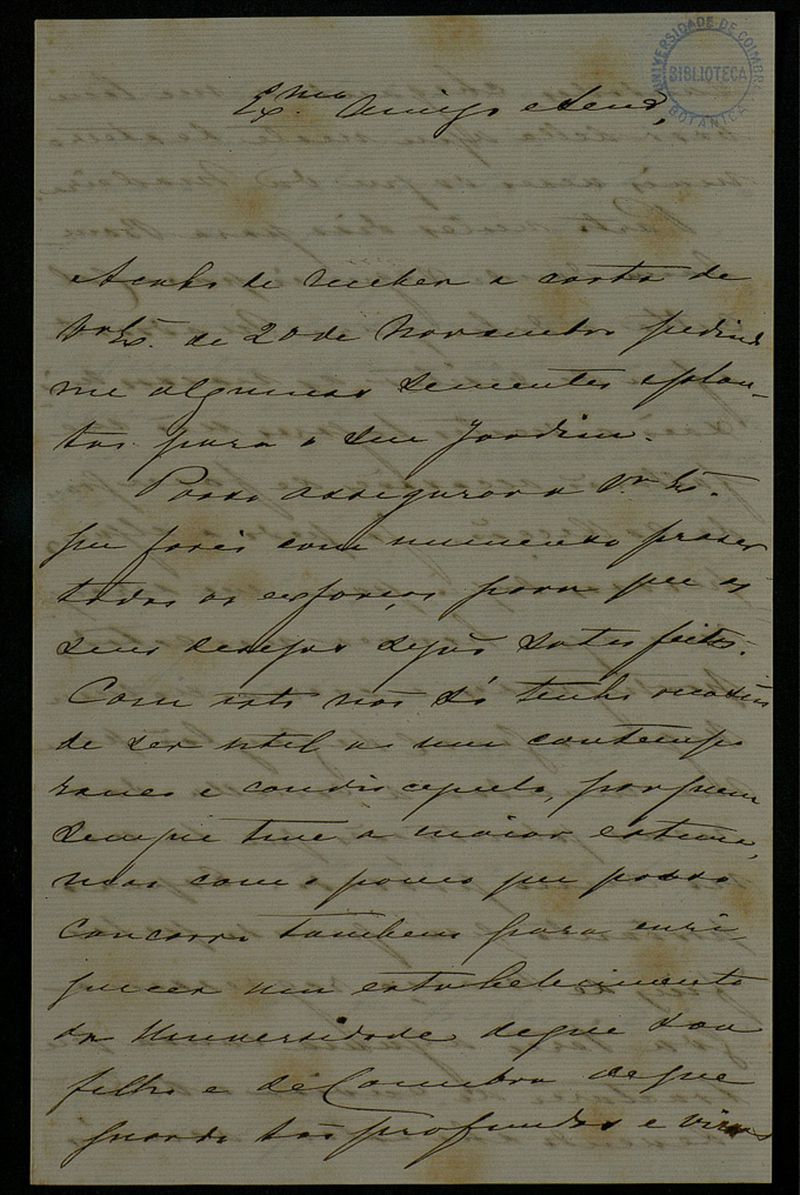 UNIVERSIDADE DE COIMBRA
BIBLIOTECA
BOTANICA
Exmo Amigo e Senr,
Acabo de receber a carta de
Vª Exª. de 20 de Novembro pedindo
me algumas sementes e plan-
tas para o seu Jardim.
Posso assegurar a Vª Exª.
que farei com immenso praser
todos os esforços para que os
seus desejos sejão satisfeitos.
Com isto não só tenho occasião
de ser util a um contempo
raneo e condiscipulo, por quem
sempre tive a maior estima,
mas com o pouco que posso
concorro tambem para enri-
quecer um estabelecimento
da Universidade de que sou
filho e de Coimbra de que
guardo tão profundas e vivas